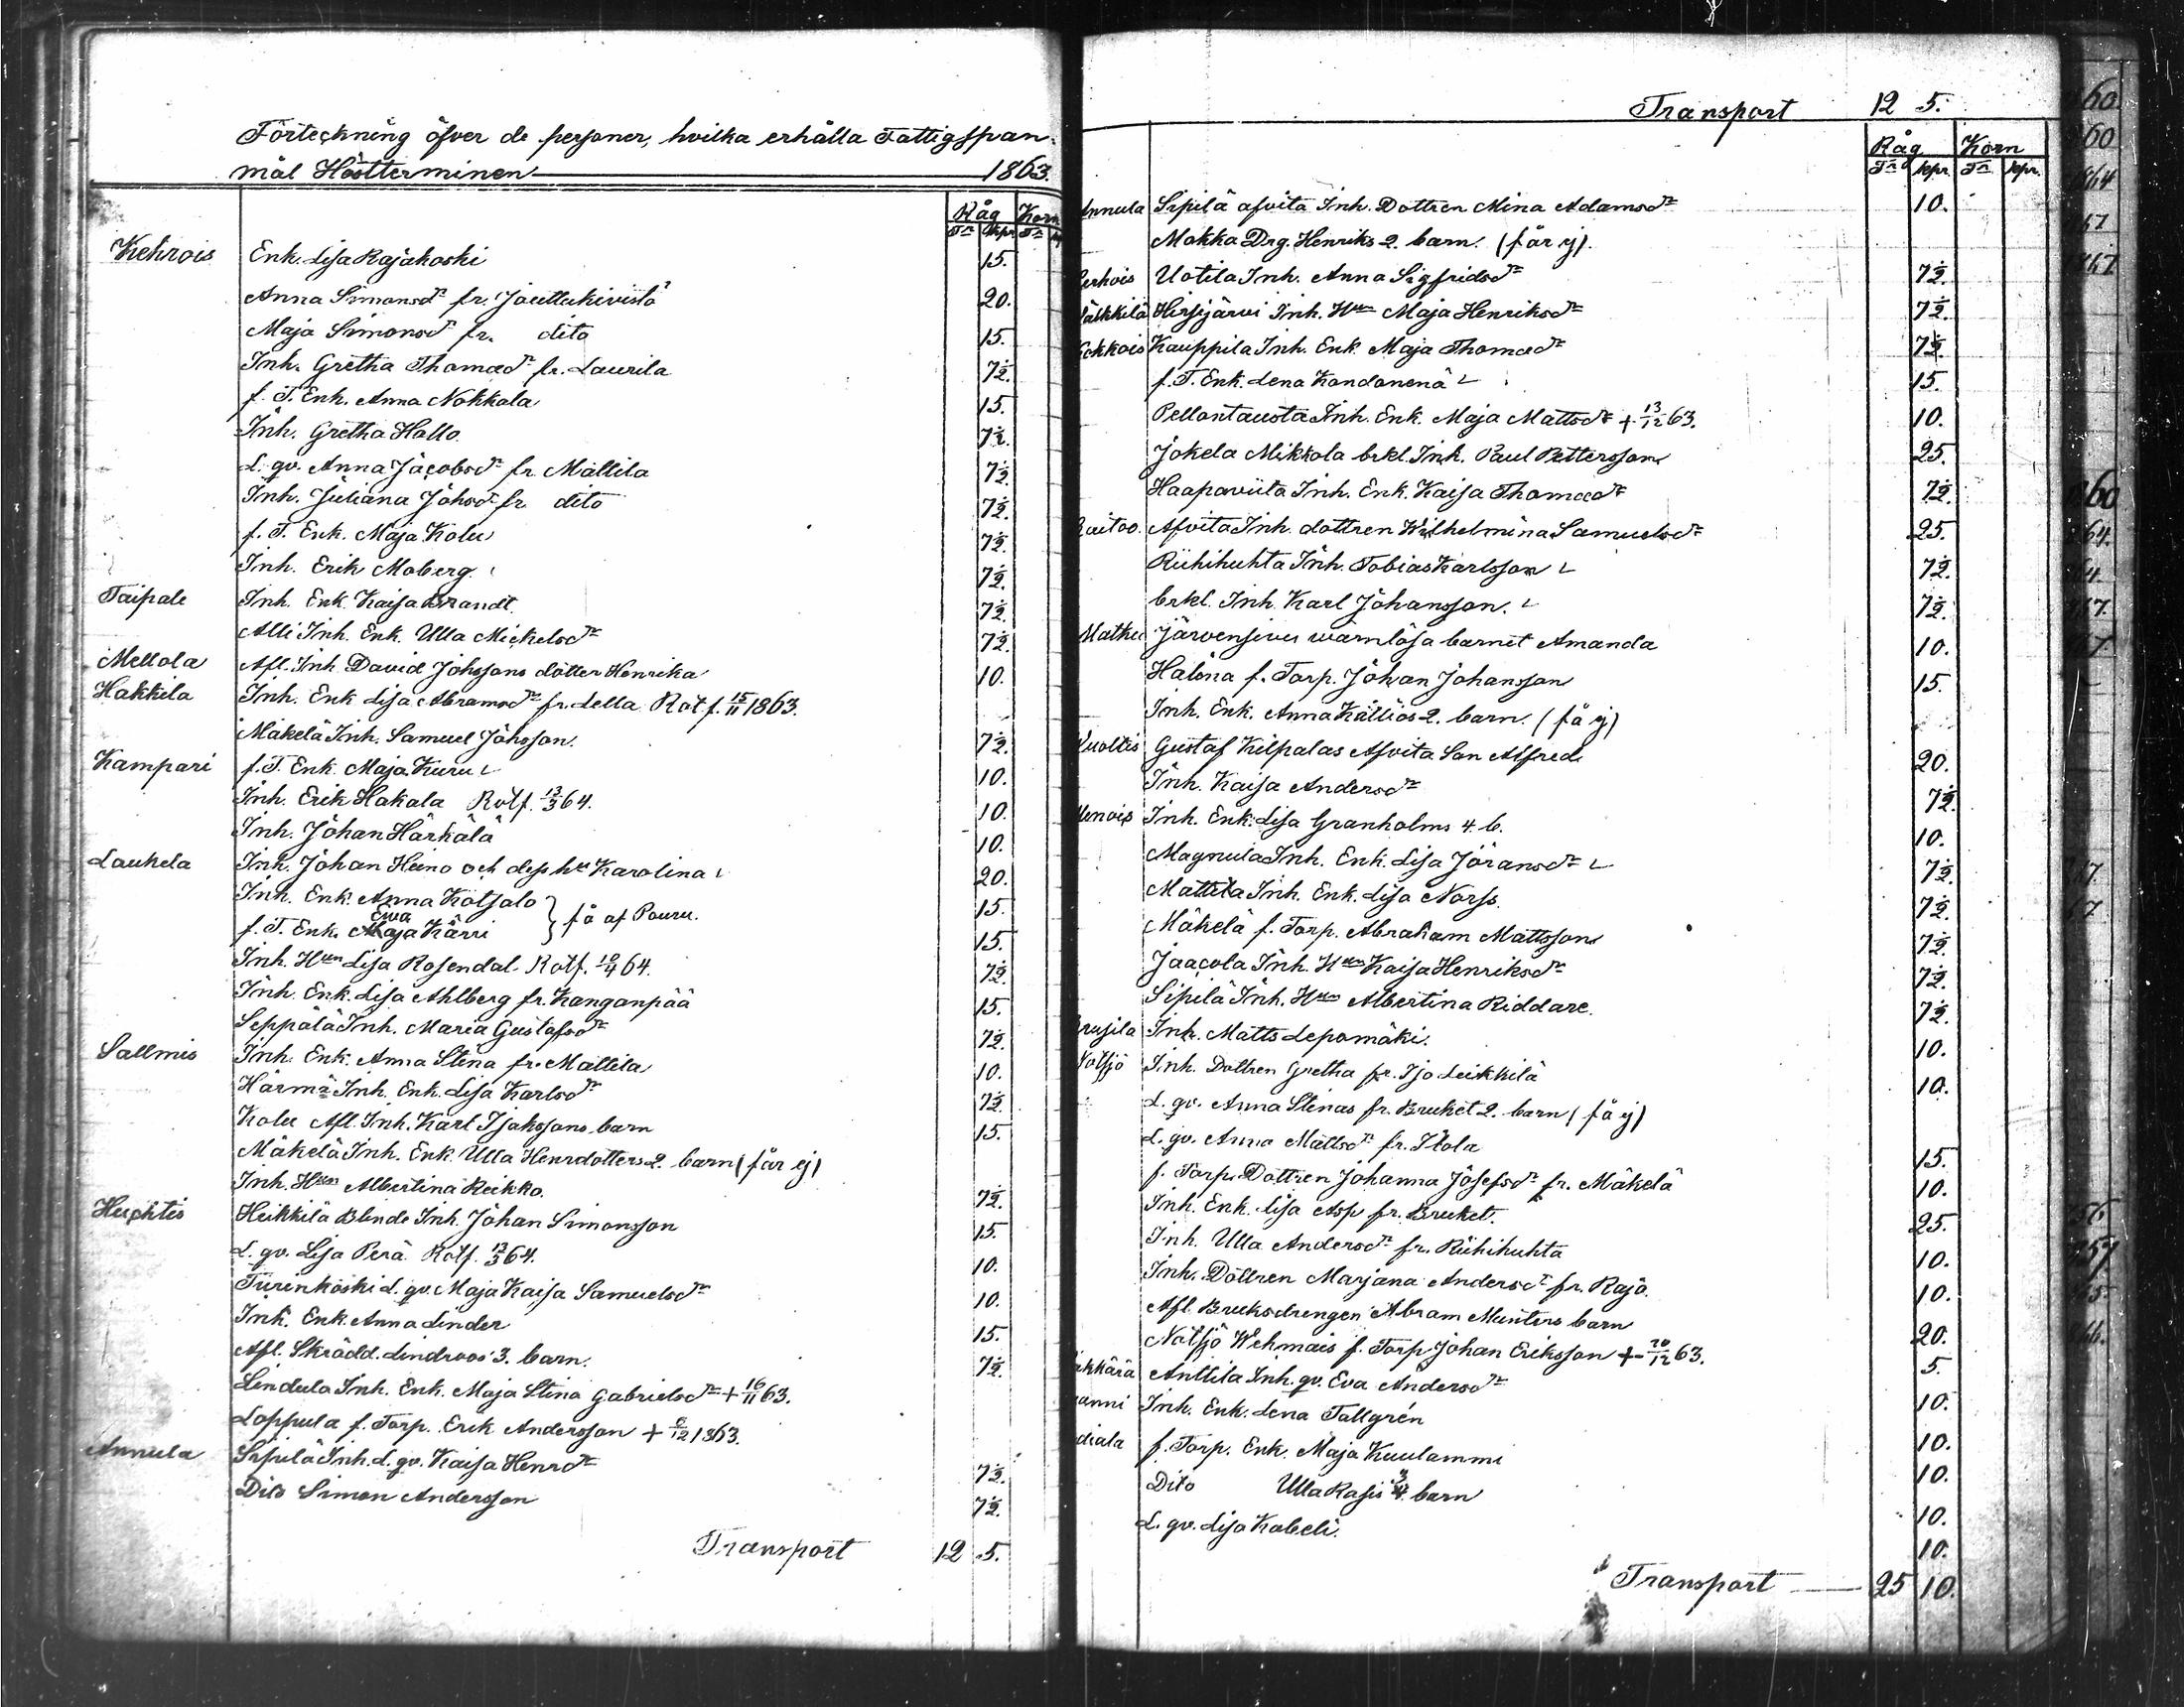 Förteckning öfver de personer, hvilka erhålla Fattigspan-
mål Höstterminen 1863.
Råg Korn
Tr Kpr Tr
Kehrois Enk. Lisa Rajakoski 15.
Anna Simonsdr fr. Jouttukivistö 20.
Maja Simonsd. fr. dito 15.
Inh. Gretha Thomasdr fr. Laurila 7½.
f. T. Enk. Anna Nokkala 15.
Inh. Gretha Hollo 7½.
L. qv. Anna Jacobsdr fr. Mattila 7½.
Inh. Juliana Johsdr fr. dito 7½.
f. T. Enk. Maja Kolu 7½.
Inh. Erik Moberg. 7½.
Taipale Inh. Enk. Kaisa Brandt 7½.
Alli Inh. Enk. Ulla Mickelsdr 7½.
Mellola Afl. Inh. David Johssons dotter Henrika 10.
Hakkila Inh. Enk Lisa Abramsdr fr. Lella Rotf. 15/11 1863.
Mäkelä Inh. Samuel Johsson. 7½.
Kampari f. T. Enk. Maja Kuru 10.
Inh. Erik Hakala Rotf. 13/3 64. 10.
Inh. Johan Härkälä 10.
Laukela Inh. Johan Heino och dess hu Karolina 20.
Inh. Enk. Anna Kotsalo 15.
Eva
f. T. Enk. Maja Kärri } få af Pouru. 15.
Inh. Hun Lisa Rosendal. Rotf. 10/4 64. 7½.
Inh. Enk. Lisa Ahlberg fr. Kanganpää 15.
Seppälä Inh. Maria Gustafsdr 7½.
Sallmis Inh. Enk. Anna Stina fr. Mattila 10.
Härmä Inh. Enk. Lisa Karlsdr 7½.
Kolu Afl. Inh. Karl Isakssons barn 15.
Mäkelä Inh. Enk. Ulla Henrdotters 2. barn (får ej)
Inh. Hun Albertina Reikko. 7½.
Huhtis Heikkilä Blinde Inh. Johan Simonsson 15.
L. qv. Lisa Perä Rotf. 13/3 64. 10.
Turinkoski L. qv. Maja Kaisa Samuelsdr 10.
Inh. Enk. Anna Linder 15.
Afl. Skrädd. Lindroos 3. barn. 7½.
Lindula Inh. Enk. Maja Stina Gabrielsdr + 16/11 63.
Loppula f. Torp. Erik Andersson + 6/12 1863.
Annula Sipilä Inh. L. qv. Kaisa Henrdr 7½.
Dito Simon Andersson 7½.
Transport 12 5.
Transport 12 5.
Råg Korn
Tr kpr Tr kpr.
Annula Sipilä afvita Inh. Dottren Mina Adamsdr 10.
Mokka Drg. Henriks 2. barn. (får ej).
Uotila Inh. Anna Sigfridsdr 7½.
Hirsjärvi Inh. Hun Maja Henriksdr 7½.
Kauppila Inh. Enk. Maja Thomasdr 7½.
f. T. Enk. Lena Kondonenä 15.
Pellontausta Inh. Enk. Maja Mattsdr + 13/12 63. 10.
Jokela Mikkola brkl. Inh. Paul Pettersson 25.
Haapaviita Inh. Enk. Kaisa Thomasdr 7½.
Afvita Inh. dottren Wilhelmina Samuelsdr 25.
Riihihuhta Inh. Tobias Karlsson 7½.
brkl. Inh. Karl Johansson. 7½.
Matku Järvensivu wärnlösa barnet Amanda 10.
Halóna f. Torp. Johan Johansson 15.
Inh. Enk. Anna Källiös 2. barn. (få ej)
Kuoltis Gustaf Kilpalas Afvita Son Alfred 20.
Inh. Kaisa Andersdr 7½.
Inh. Enk. Lisa Granholms 4. b. 10.
Magnula Inh. Enk. Lisa Göransdr 7½.
Mattila Inh. Enk. Lisa Norss. 7½.
Mäkelä f. Torp. Abraham Mattsson 7½.
Jaacola Inh. Hun Kaisa Henriksdr 7½.
Sipilä Inh. Hun Albertina Riddare. 7½.
Inh. Matts Lepomäki. 10.
Inh. Dottren Gretha fr. Iso Leikkilä 10.
L. qv. Anna Stinas fr. Bruket 2. barn (få ej)
L. qv. Anna Mattsdr fr. Itola 15.
f. Torp. Dottren Johanna Josefsdr fr. Mäkelä 10.
Inh. Enk. Lisa Asp fr. Bruket. 25.
Inh. Ulla Andersdr fr. Riihihuhta 10.
Inh. Dottren Marjana Andersdr fr. Rajo. 10.
Afl. Bruksdrengen Abram Munters barn 20.
Notsjö Wehmais f. Torp Johan Eriksson + 20/12 63. 5.
Anttila Inh. qv. Eva Andersdr 10.
Inh. Enk. Lena Tallgrén 10.
f. Torp. Enk. Maja Kuulammi 10.
Dito Ulla Rasis 3 barn 10.
L. qv. Lisa Kabeli. 10.
Transport 25 10.